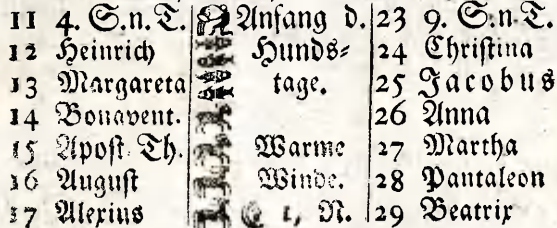 11 4. S.n.T. Anfang d. 23 9. S.n.T.
12 Heinrich Hunds- 24 Christina
13 Margareta tage. 25 Jacobus
14 Bonavent. 26 Anna
15 Apost. Th. Warme 27 Martha
16 August Winde. 28 Pantaleon
17 Alexius 1, N. 29 Beatrix